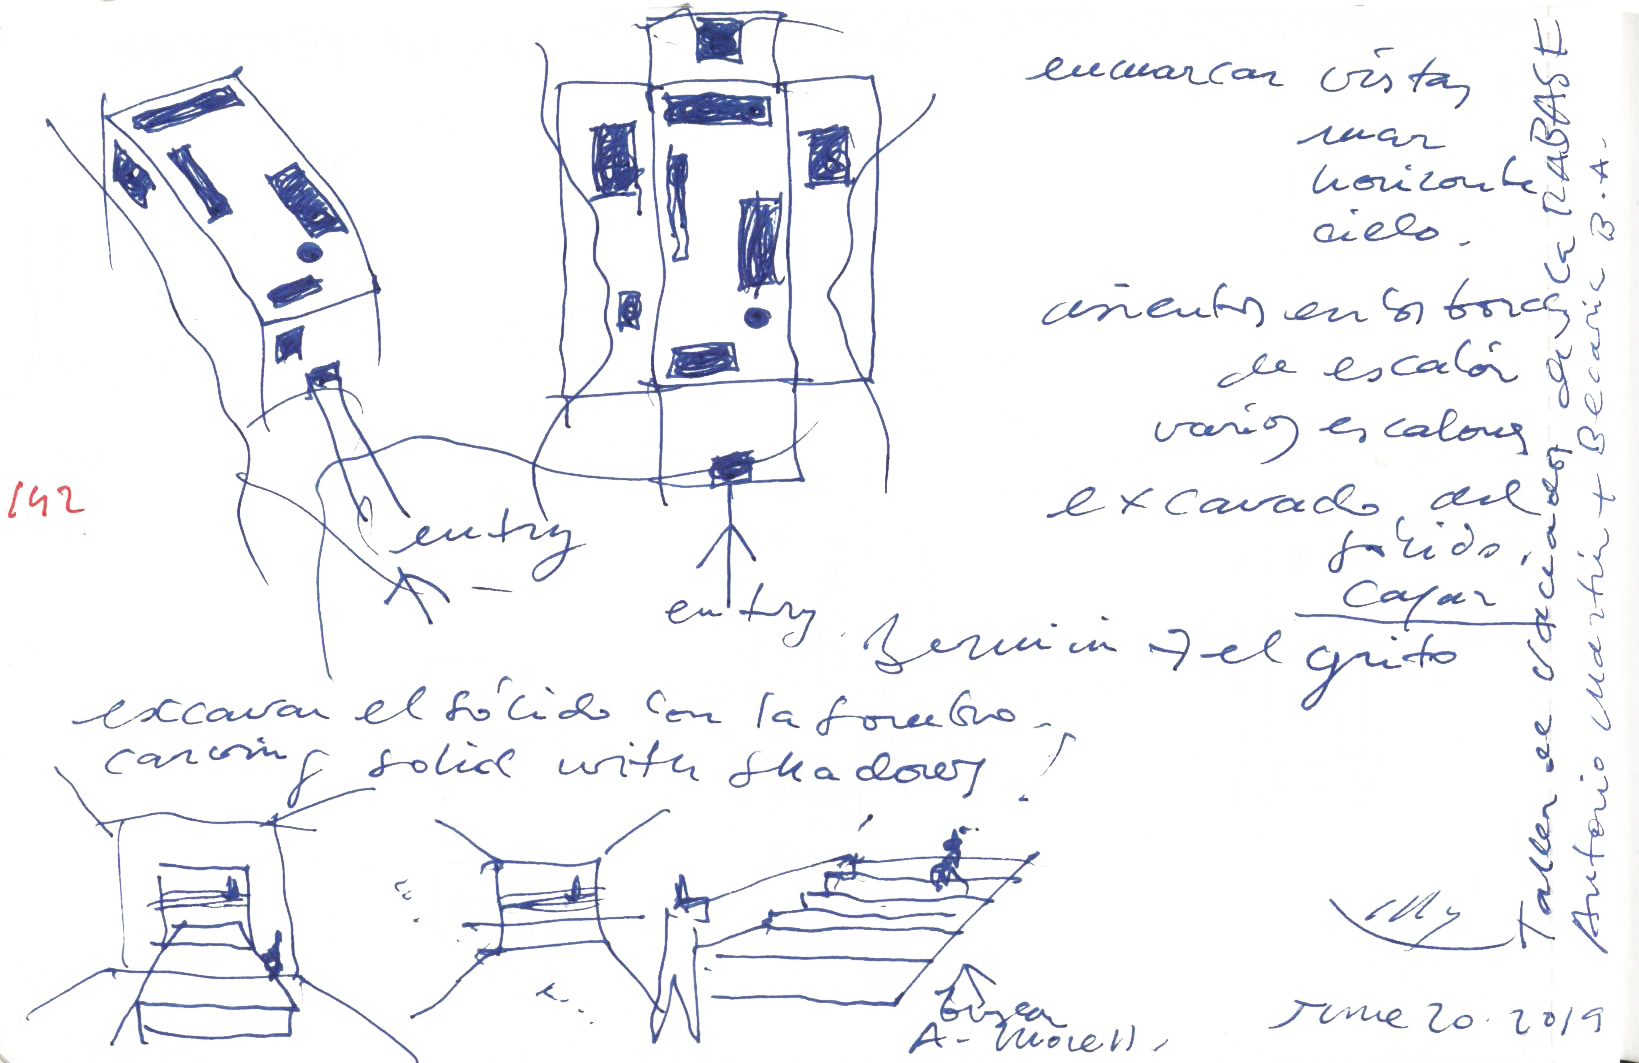 enmarcar vistas
mar
horizonte
cielo.
asientos en los bordes
de escalón
varios escalones
excavado del
sólido.
142
entry
entry.
Bernini → el grito
excavar el sólido con la sombra.
carving solid with shadows!
buscar
A. Morell.
June 20. 2019
Taller de Vaciados de la RABASF
Antonio Martín + Becaria B.A.